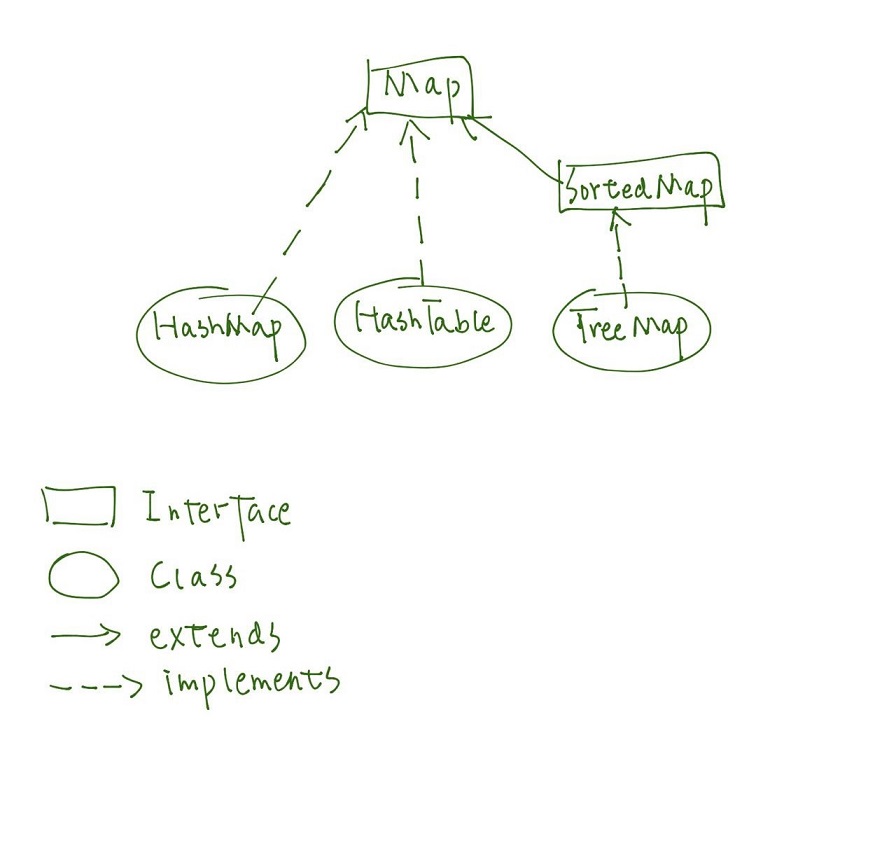 Map
SortedMap
HashMap
HashTable
TreeMap
Interface
Class
extends
implements